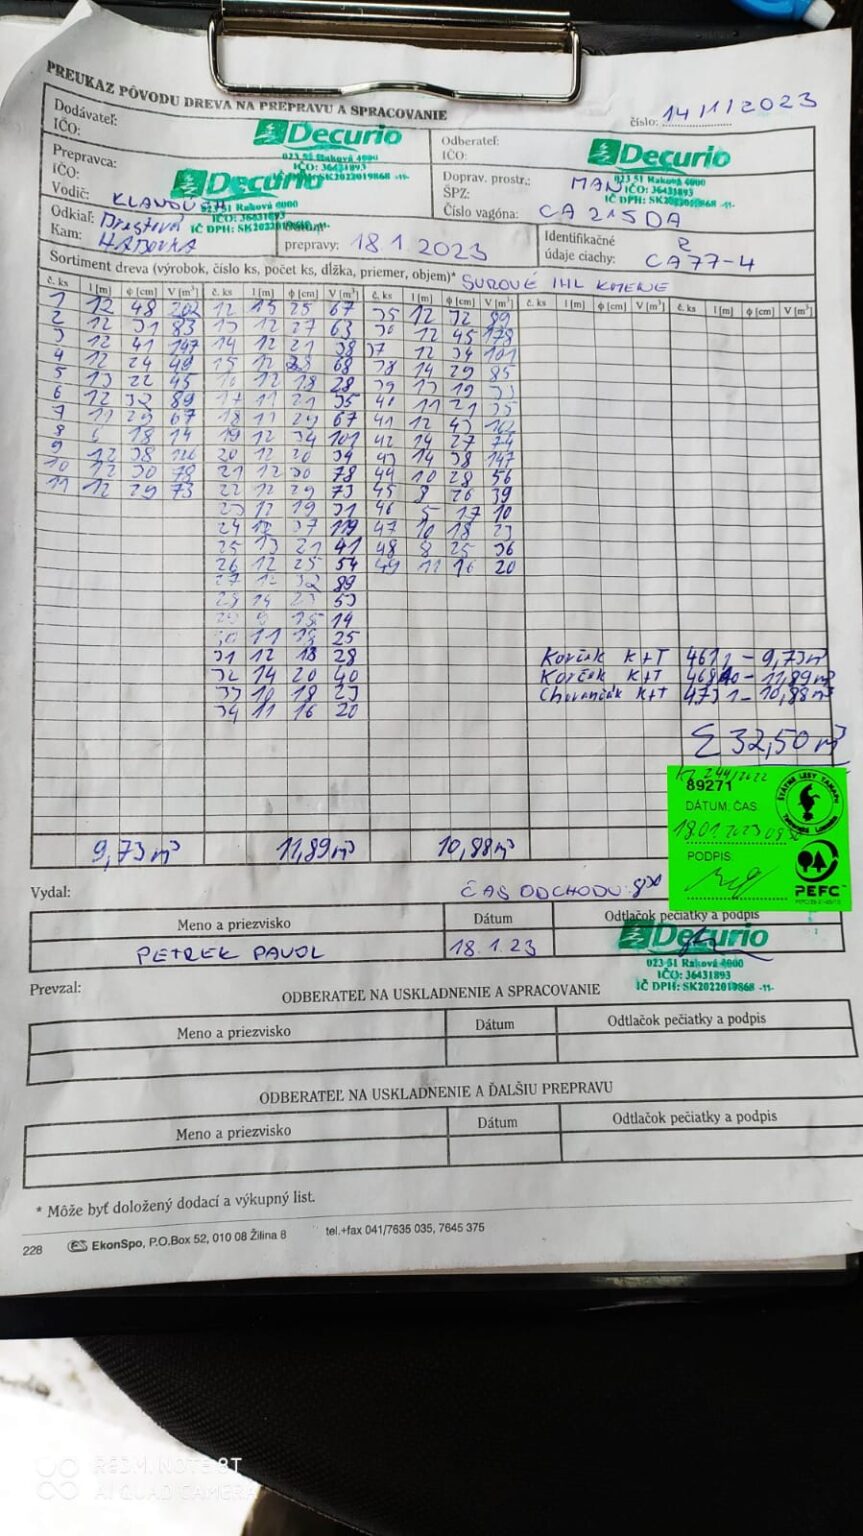 PREUKAZ PÔVODU DREVA NA PREPRAVU A SPRACOVANIE
číslo: 14/1/2023
Dodávateľ:
IČO:
Decurio
023 51 Raková 4000
IČO: 36431893
Odberateľ:
IČO:
Decurio
023 51 Raková 4000
IČO: 36431893
IČ DPH: SK2022019868 -11-
Prepravca:
IČO:
Decurio
023 51 Raková 4000
IČO: 36431893
IČ DPH: SK2022019868 -11-
Vodič:
Doprav. prostr.: MAN
ŠPZ:
Číslo vagóna: CA 215DA
Odkiaľ:
Kam: HABOVKA
prepravy: 18 1. 2023
Identifikačné
údaje ciachy: CA77-4
Sortiment dreva (výrobok, číslo ks, počet ks, dĺžka, priemer, objem)* SUROVÉ IHL KMENE
č. ks l [m] ϕ [cm] V [m³] č. ks l [m] ϕ [cm] V [m³] č. ks l [m] ϕ [cm] V [m³] č. ks l [m] ϕ [cm] V [m³] č. ks l [m] ϕ [cm] V [m³]
1 12 48 202 12 15 25 67 35 12 32 89
2 12 31 83 13 12 27 63 36 12 45 178
3 12 41 147 14 12 21 38 37 12 34 101
4 12 24 49 15 12 28 68 38 14 29 85
5 13 22 45 16 12 18 28 39 13 19 33
6 12 32 89 17 11 21 35 40 11 21 35
7 11 29 67 18 11 29 67 41 12 43
8 6 18 14 19 12 34 101 42 14 27 74
9 12 38 126 20 12 20 34 43 14 38 147
10 12 30 78 21 12 30 78 44 10 28 56
11 12 29 73 22 12 29 73 45 8 26 39
23 12 19 31 46 5 17 10
24 12 37 119 47 10 18 23
25 13 21 41 48 8 25 36
26 12 25 54 49 11 16 20
27 12 32 89
28 14 23 53
29 9 15 14
30 11 18 25
31 12 18 28
32 14 20 40
33 10 18 23
34 11 16 20
Korčák K+T 461 – 9,73m³
Korčák K+T – 11,89m³
K+T 473 – 10,88m³
Σ 32,50 m³
89271
DÁTUM, ČAS
18.01.2023
PODPIS:
PEFC
9,73m³ 11,89m³ 10,88m³
Vydal:
ČAS ODCHODU: 8³⁰
Meno a priezvisko Dátum Odtlačok pečiatky a podpis
PETREK PAVOL 18.1.23
Decurio
023 51 Raková 4000
IČO: 36431893
IČ DPH: SK2022019868 -11-
Prevzal:
ODBERATEĽ NA USKLADNENIE A SPRACOVANIE
Meno a priezvisko Dátum Odtlačok pečiatky a podpis
ODBERATEĽ NA USKLADNENIE A ĎALŠIU PREPRAVU
Meno a priezvisko Dátum Odtlačok pečiatky a podpis
* Môže byť doložený dodací a výkupný list.
228 EkonSpo, P.O.Box 52, 010 08 Žilina 8 tel.+fax 041/7635 035, 7645 375
REDMI NOTE 8T
AI QUAD CAMERA